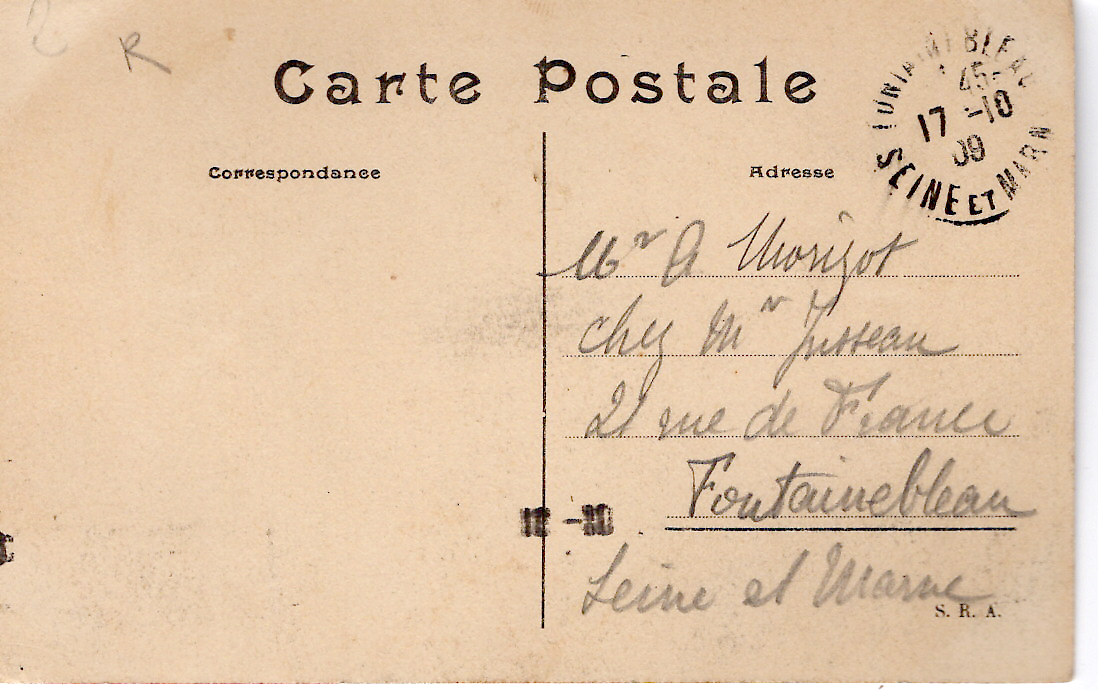 2
R
Carte Postale
Correspondance
Adresse
45
17 -10
09
SEINE ET MARN
Mr A Morizot
chez Mr Jusseau
21 rue de France
Fontainebleau
Seine et Marne
S. R. A.